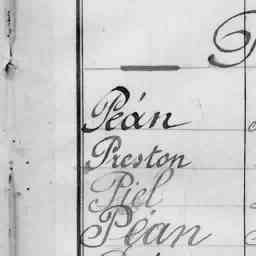 P
Peán
Preston
Piel
Péan